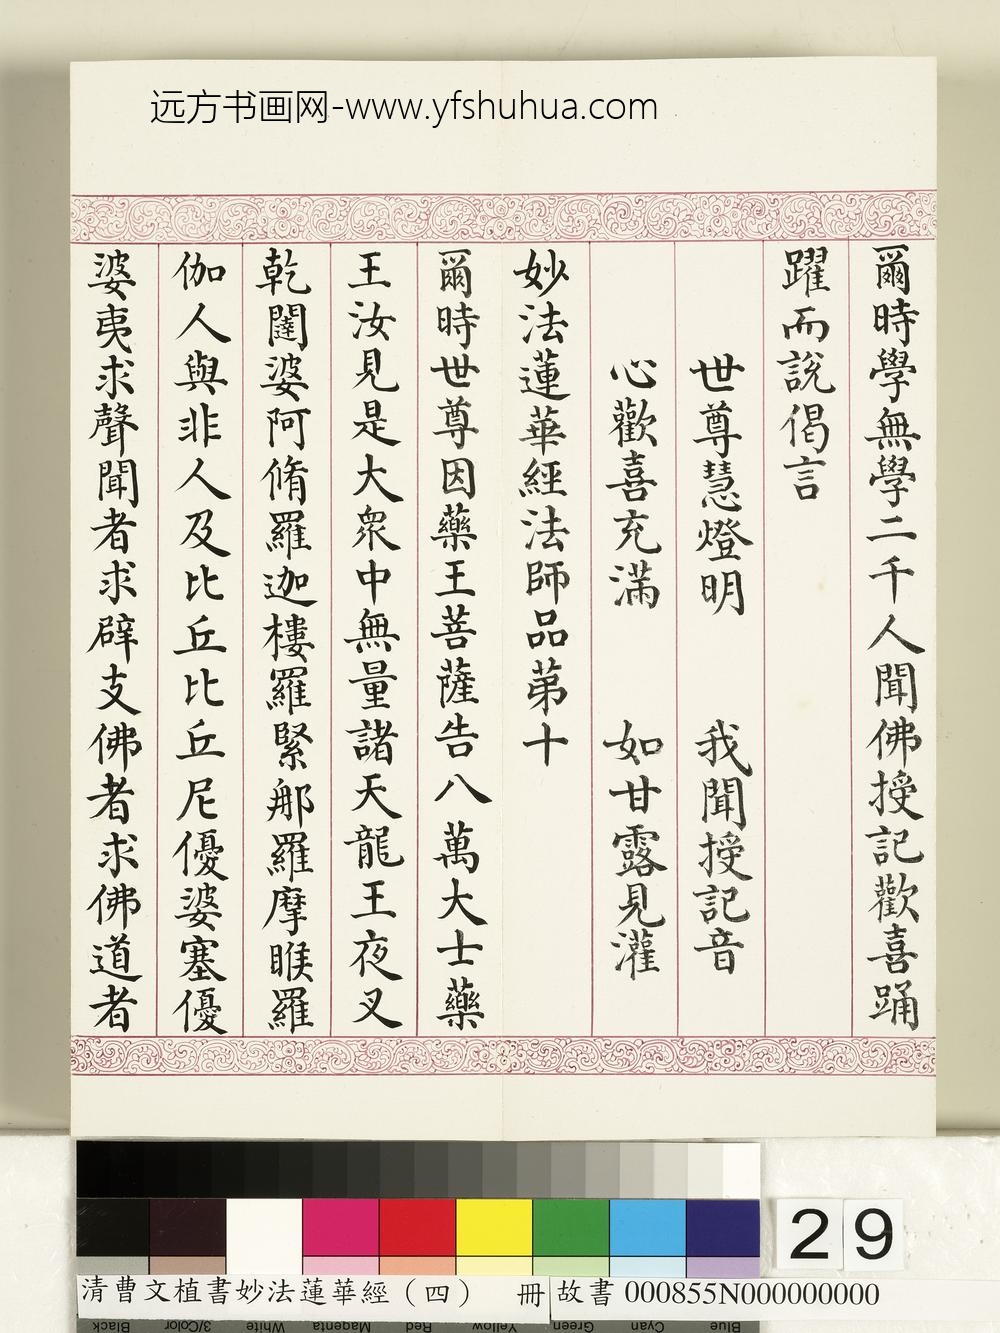 远方书画网-www.yfshuhua.com
爾時學無學二千人聞佛授記歡喜踊
躍而說偈言
世尊慧燈明　我聞授記音
心歡喜充滿　如甘露見灌
妙法蓮華經法師品苐十
爾時世尊因藥王菩薩告八萬大士藥
王汝見是大衆中無量諸天龍王夜叉
乾闥婆阿脩羅迦樓羅緊那羅摩睺羅
伽人與非人及比丘比丘尼優婆塞優
婆夷求聲聞者求辟支佛者求佛道者
29
清曹文植書妙法蓮華經（四）　冊
故書 000855N000000000
Black 3/Color White Magenta Red Yellow Green Cyan Blue